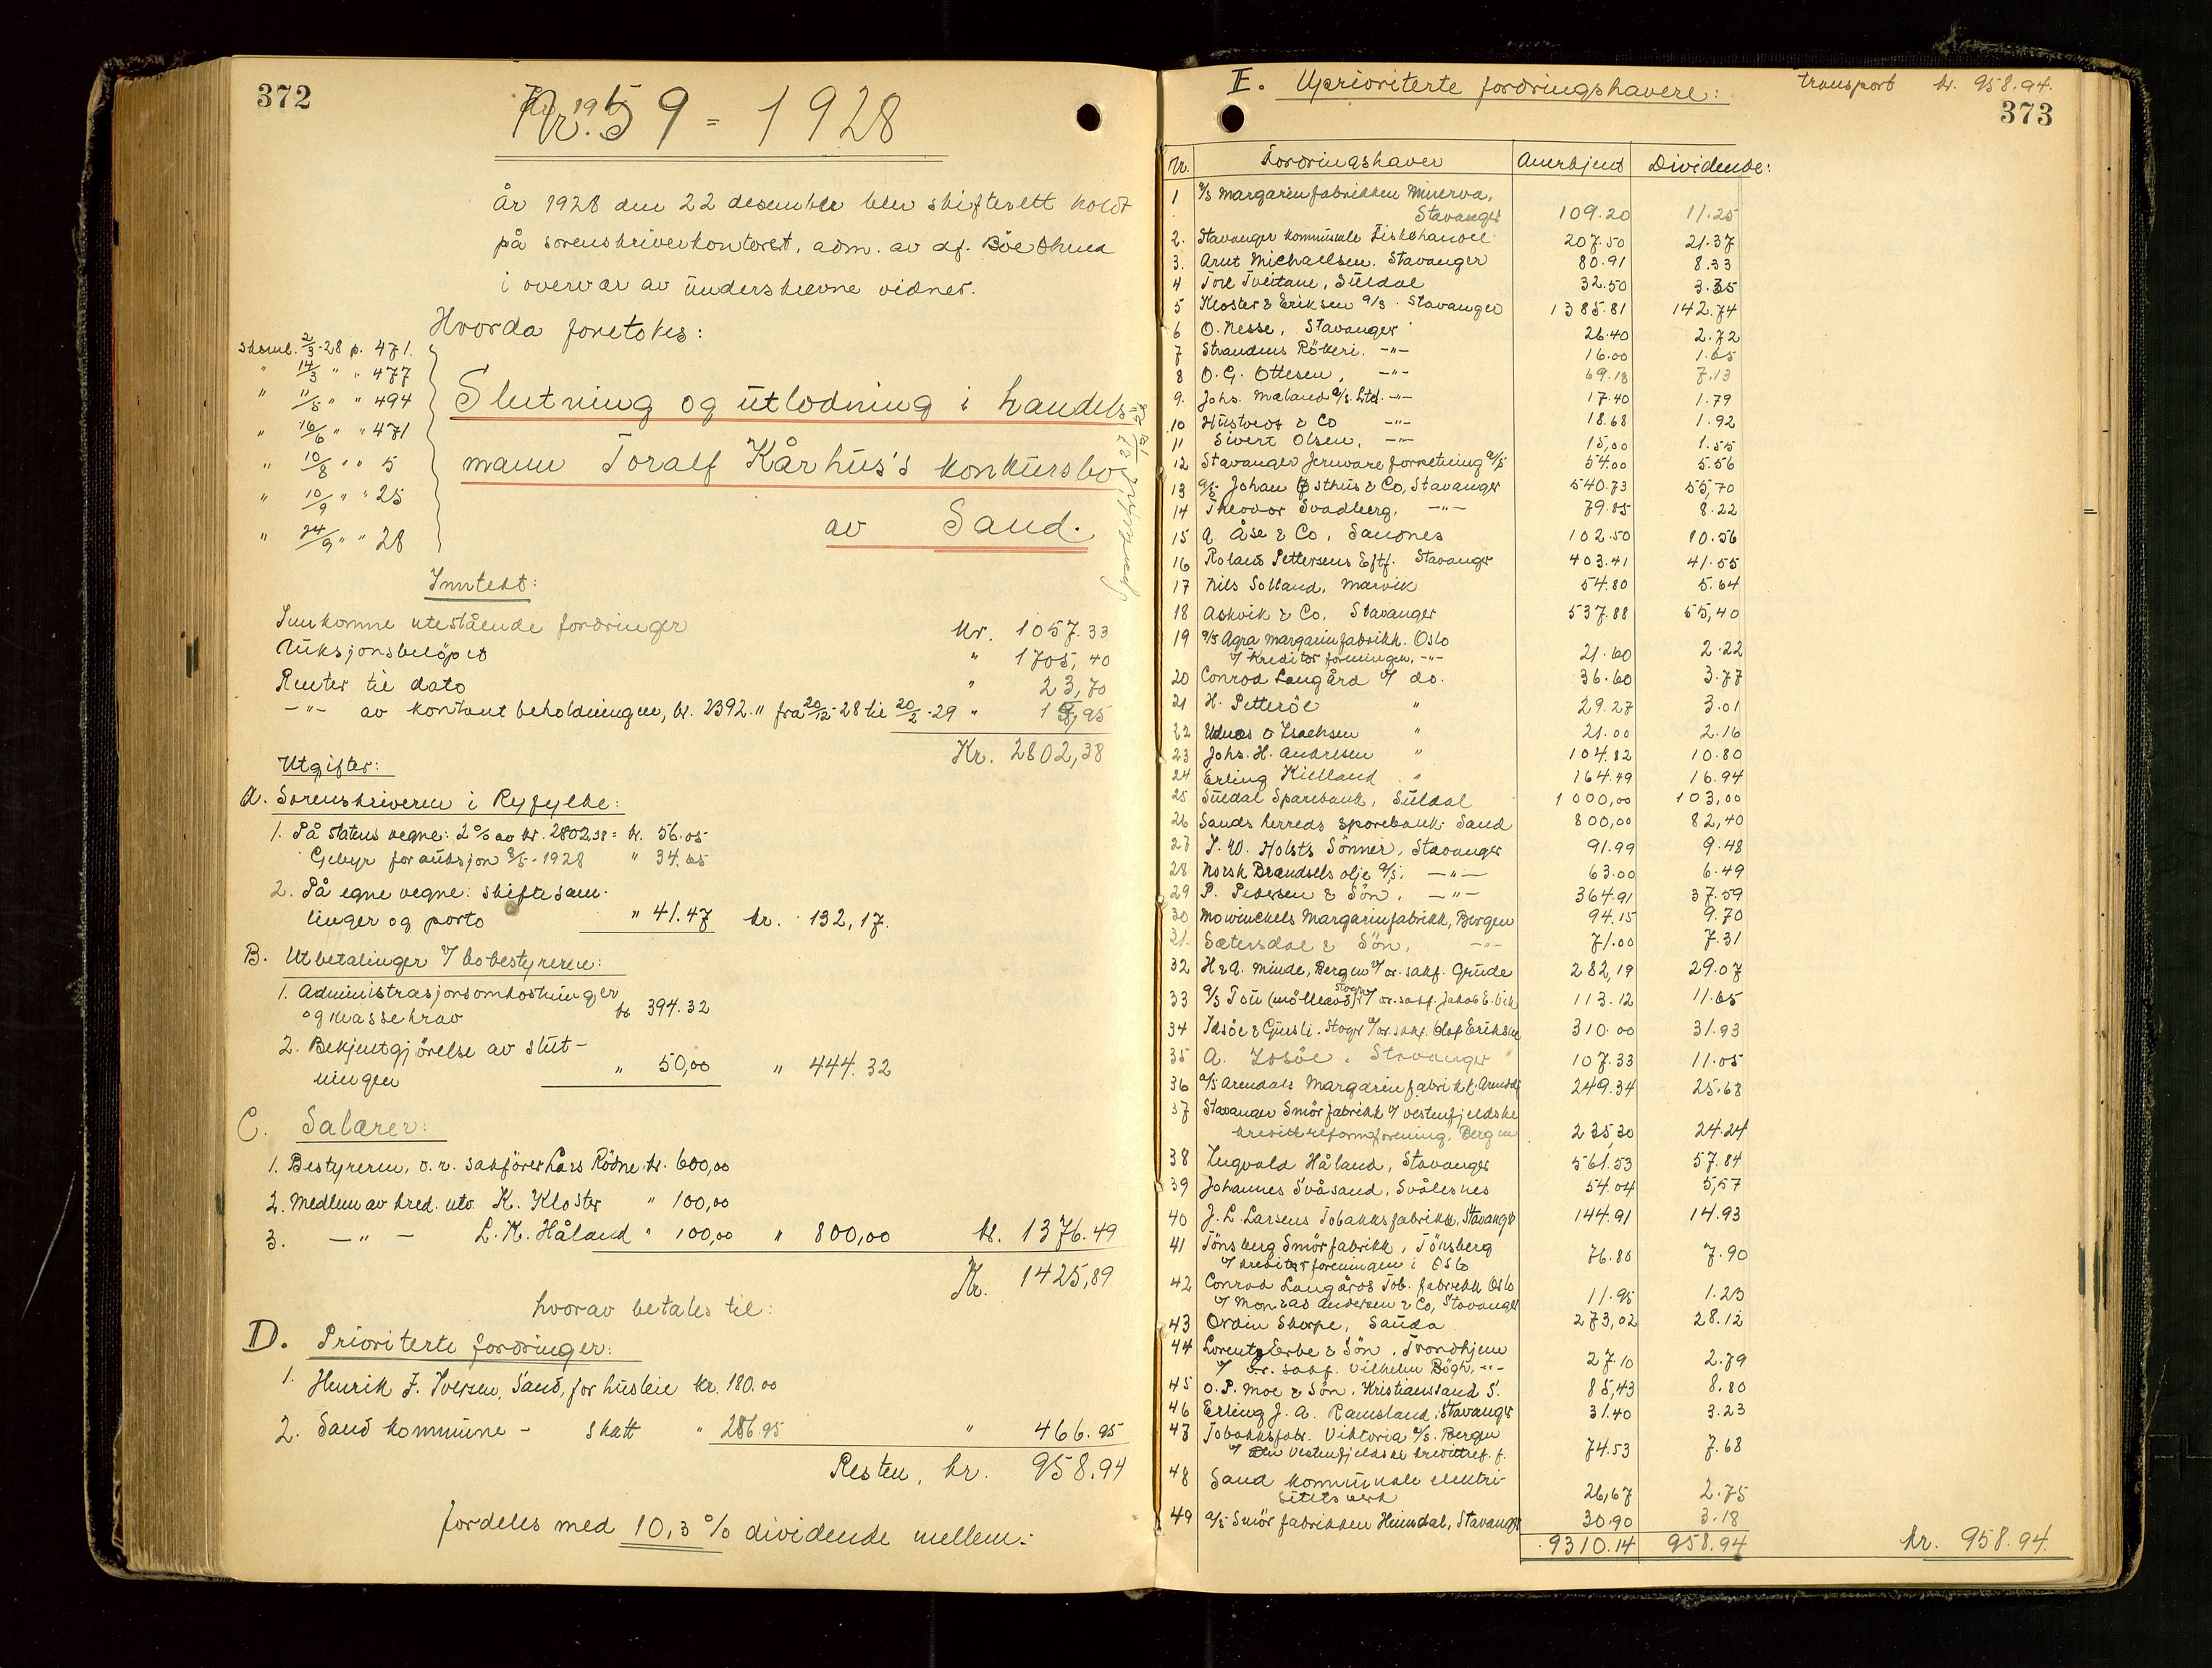 372
Nr. 59 = 1928
år 1928 den 22 desember blev skifterett holdt
på sorenskriverkontoret, adm. av df. Böe
i overvær av underskrevne vidner.
Hvorda foretokes:
Sksml. 2/3-28 p. 471.
" 14/3 " " 477
" 11/5 " " 494
" 16/6 " " 471
" 10/8 " " 5
" 10/9 " " 25
" 24/9 " " 28
Slutning og utlodning i handels-
mann Toralf Kårhus's konkursbo
av Sand.
Inntekt:
Innkomne utestående fordringer kr. 1057.33
Auksjonsbelöpet " 1705,40
Renter til dato " 23,70
-"- av kontant beholdningen, kr. 2392." fra 20/12-28 til 20/2-29 " 15,95
Kr. 2802,38
Utgifter:
A. Sorenskriveren i Ryfylke:
1. På statens vegne: 2% av kr. 2802,38 = kr. 56.05
Gebyr for auksjon 8/5-1928 " 34.65
2. På egne vegne: skiftesam-
linger og porto " 41.47 kr. 132,17.
B. Utbetalinger v/ bobestyreren:
1. Administrasjonsomkostninger
og massekrav kr. 394.32
2. Bekjentgjörelse av slut-
ningen " 50,00 " 444.32
C. Salærer:
1. Bestyreren, o.r. sakförer Lars Rödne kr. 600,00
2. Medlem av kred. utv. K. Kloster " 100,00
3. -"- L. K. Håland " 100,00 " 800,00 kr. 1376.49
Kr. 1425,89
hvorav betales til:
D. Prioriterte fordringer:
1. Henrik J. Iversen, Sand, for husleie kr. 180.00
2. Sand kommune - skatt " 286.95 " 466.95
Resten, kr. 958.94
fordeles med 10,3% dividende mellem:
E. Uprioriterte fordringshavere: transport kr. 958.94.
373
Nr. Fordringshaver Anerkjent Dividende:
1 A/S Margarinfabrikken Minerva,
Stavanger 109.20 11.25
2. Stavanger kommunale Fiskehandel 207.50 21.37
3. Arnt Michaelsen. Stavanger 80.91 8.33
4 Torl Tveitane, Suldal 32.50 3.35
5 Kloster & Eriksen A/S. Stavanger 1385.81 142.74
6 O. Nesse, Stavanger 26.40 2.72
7 Strandens Rökeri. -"- 16.00 1.65
8 O. G. Ottesen, -"- 69.18 7.13
9. Johs. Mæland A/S. Ltd. -"- 17.40 1.79
10 Hustvedt & Co -"- 18.68 1.92
11 Sivert Olsen, -"- 15,00 1.55
12 Stavanger Jernvareforretning A/S 54.00 5.56
13 A/S Johan Østhus & Co, Stavanger 540.73 55,70
14 Theodor Svadberg, -"- 79.85 8.22
15 A. Åse & Co, Sandnes 102.50 10.56
16 Roland Pettersens Eftf. Stavanger 403.41 41.55
17 Nils Solland, Marvik 54.80 5.64
18 Askvik & Co. Stavanger 537.88 55,40
19 A/S Agra margarinfabrikk. Oslo
v/ Kreditorforeningen, -"- 21.60 2.22
20 Conrad Langård v/ do. 36.60 3.77
21 H. Petteröe " 29.27 3.01
22 & Isachsen " 21.00 2.16
23 Johs. H. Andresen " 104.82 10.80
24 Erling Kielland " 164.49 16.94
25 Suldal Sparebank, Suldal 1000,00 103,00
26 Sands herreds sparebank. Sand 800,00 82,40
27 J. W. Holsts Sönner, Stavanger 91.99 9.48
28 Norsk Brændselsolje A/S. -"- 63.00 6.49
29 P. Pedersen & Sön. -"- 364.91 37.59
30 Mowinckels Margarinfabrikk, Bergen 94.15 9.70
31. Sætersdal & Sön, -"- 71.00 7.31
32 H & A. Minde, Bergen v/ or. sakf. Grude 282,19 29.07
33 A/S Tou (mölleavd) Stavgr v/ or. sakf. Jakob E. 113.12 11.65
34 Idsöe & Gjersli. Stvgr v/ or. sakf. Olaf Eriksen 310.00 31.93
35 A. Idsöe. Stavanger 107.33 11.05
36 A/S Arendals Margarinfabrikk. Arendal 249.34 25.68
37 Stavanger Smörfabrikk v/ vestenfjeldske
kredittreformforening. Bergen 235,30 24.24
38 Ingvald Håland, Stavanger 561.53 57.84
39 Johannes Svåsand, Svålesnes 54.04 5,57
40 J. L. Larsens Tobakksfabrikk, Stavangr 144.91 14.93
41 Tönsberg Smörfabrikk, Tönsberg
v/ kreditorforeningen i Oslo 76.80 7.90
42 Conrad Langårds Tob. fabrikk Oslo
v/ Monrad Andersen & Co, Stavanger 11.95 1.23
43 Ordin Skorpe, Sauda 273,02 28.12
44 Lorentz Erbe & Sön. Trondhjem
v/ or. sakf. Vilhelm Bögh, -"- 27.10 2.79
45 O. P. Moe & Sön. Kristiansand S. 85,43 8.80
46 Erling J. A. Ramsland, Stavangr 31.40 3.23
47 Tobakksfabr. Viktoria A/S. Bergen
v/ Den Vestenfjeldske kredittref. f. 74.53 7.68
48 Sand kommunale elektri-
sitetsverk 26,67 2.75
49 A/S Smörfabrikken Heimdal, Stavanger 30.90 3.18
9310.14 958.94 kr. 958.94.